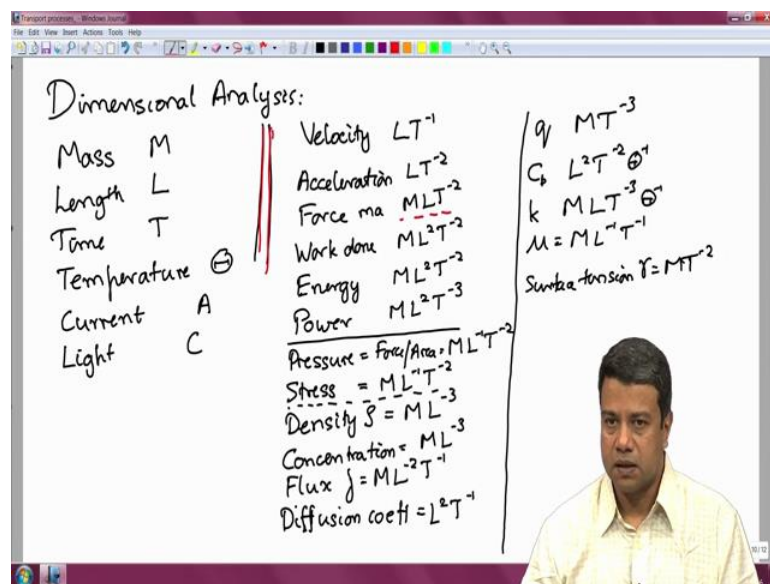 Transport processes_ - Windows Journal
File Edit View Insert Actions Tools Help
Dimensional Analysis:
Mass M
Length L
Time T
Temperature Θ
Current A
Light C
Velocity LT⁻¹
Acceleration LT⁻²
Force ma MLT⁻²
Work done ML²T⁻²
Energy ML²T⁻²
Power ML²T⁻³
Pressure = Force/Area = ML⁻¹T⁻²
Stress = ML⁻¹T⁻²
Density ρ = ML⁻³
Concentration = ML⁻³
Flux j = ML⁻²T⁻¹
Diffusion coeff = L²T⁻¹
q MT⁻³
Cp L²T⁻² Θ⁻¹
k MLT⁻³ Θ⁻¹
μ = ML⁻¹T⁻¹
Surface tension γ = MT⁻²
10/12